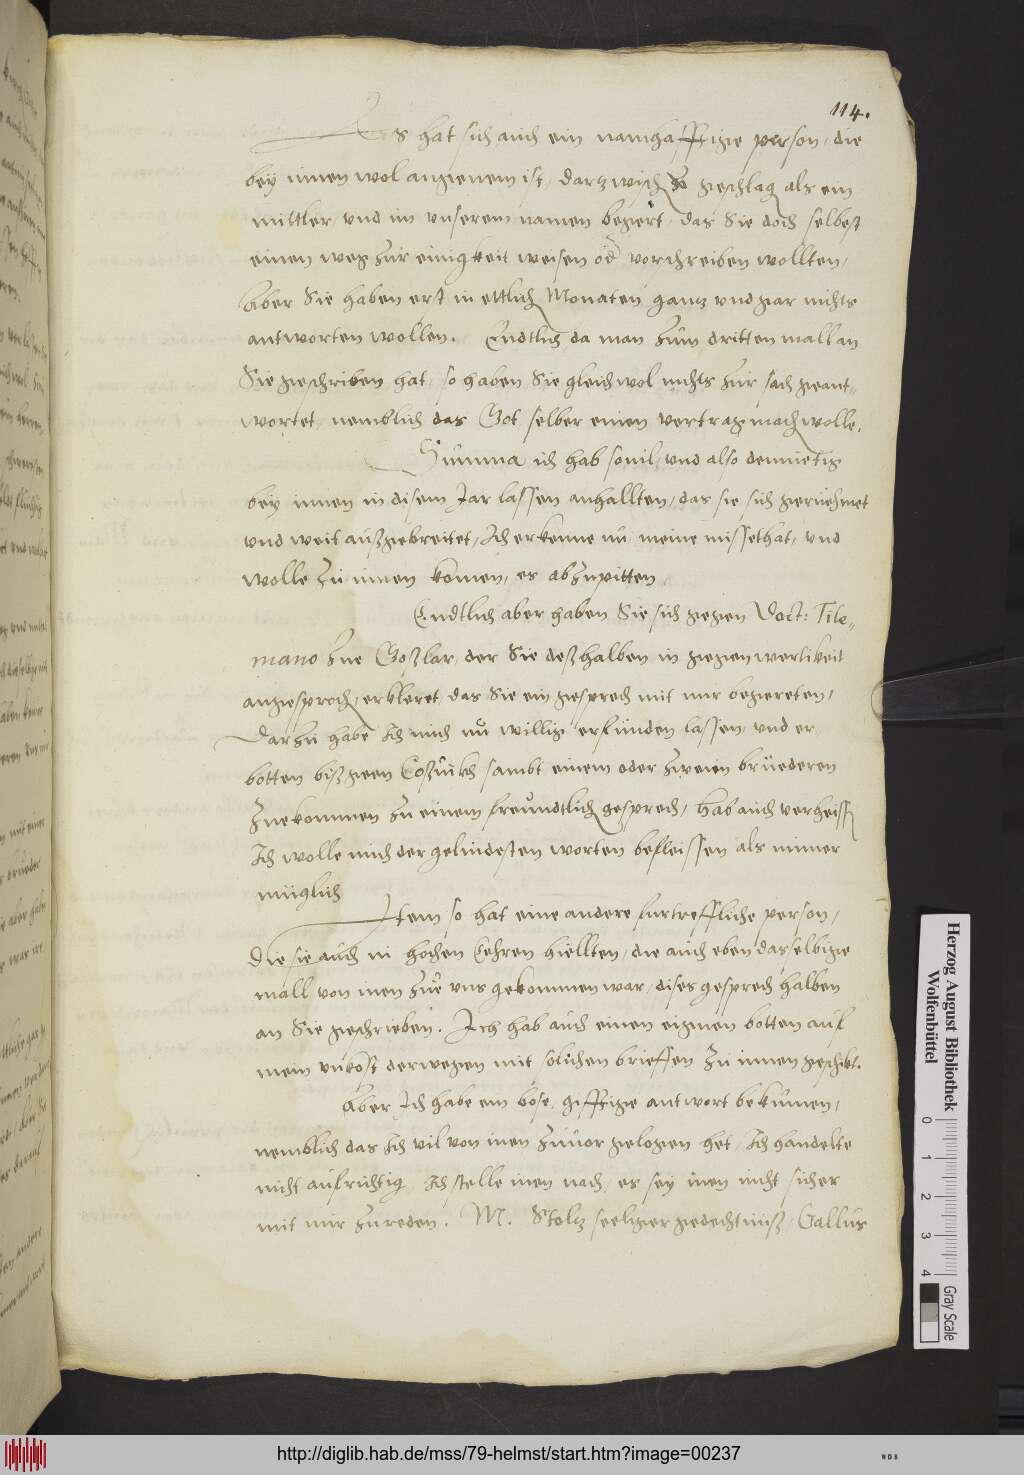 114.
Es hat sich auch ein namhafftige person, die
bey innen wol angenem ist, dartzwisch geschlag als ein
mittler, und in unserem namen begert, das Sie doch selbest
einen weg zur einigkeit weisen od vorschreiben wollten,
Aber Sie haben erst in ettlich Monaten gantz und gar nichts
antworten wollen. Endtlich da man zum dritten mall an
Sie geschriben hat, so haben Sie gleich wol nichts zur sach geant-
wortet, nemblich das Got selber einen vertrag mach wolle.
Summa ich hab sovil, und also demüetig
bey innen in disem Jar lassen anhallten, das sie sich geruehmet
und weit außgebreitet, Ich erkenne nu meine missethat, und
wolle zu innen komen, es abzupitten,
Endtlich aber haben Sie sich gegen Doct: Tile-
mano zue Goßlar, der Sie deßhalben in gegenwertikeit
angesproch, erkleret, das Sie ein gesprech mit mir begereten,
Darzu habe Ich mich nu willig erfunden lassen, und er
botten biß geen Coßwick sambt einem oder zweien brüederen
zue kommen zu einem freundtlich gesprech, Hab auch verheiss
Ich wolle mich der gelindesten worten befleissen als immer
müglich
Item so hat eine andere furtreffliche person,
Die sie auch in hochen Ehren hiellten, die auch eben dasselbige
mall von inen zue uns gekommen war, dises gesprech halben
an Sie geschrieben. Ich hab auch einen eignen botten auf
mein unkost derwegen mit solichen brieffen zu innen geschikt.
Aber Ich habe ein böse, gifftige antwort bekumen,
nemblich das Ich vil von inen zuvor gelogen het, Ich handelte
nicht aufrichtig, Ich stelle inen nach, es sey inen nicht sicher
mit mir zureden. M. Stoltz seeliger gedechtniß, Gallus
Herzog August Bibliothek
Wolfenbüttel
0 1 2 3 4
Gray Scale
http://diglib.hab.de/mss/79-helmst/start.htm?image=00237